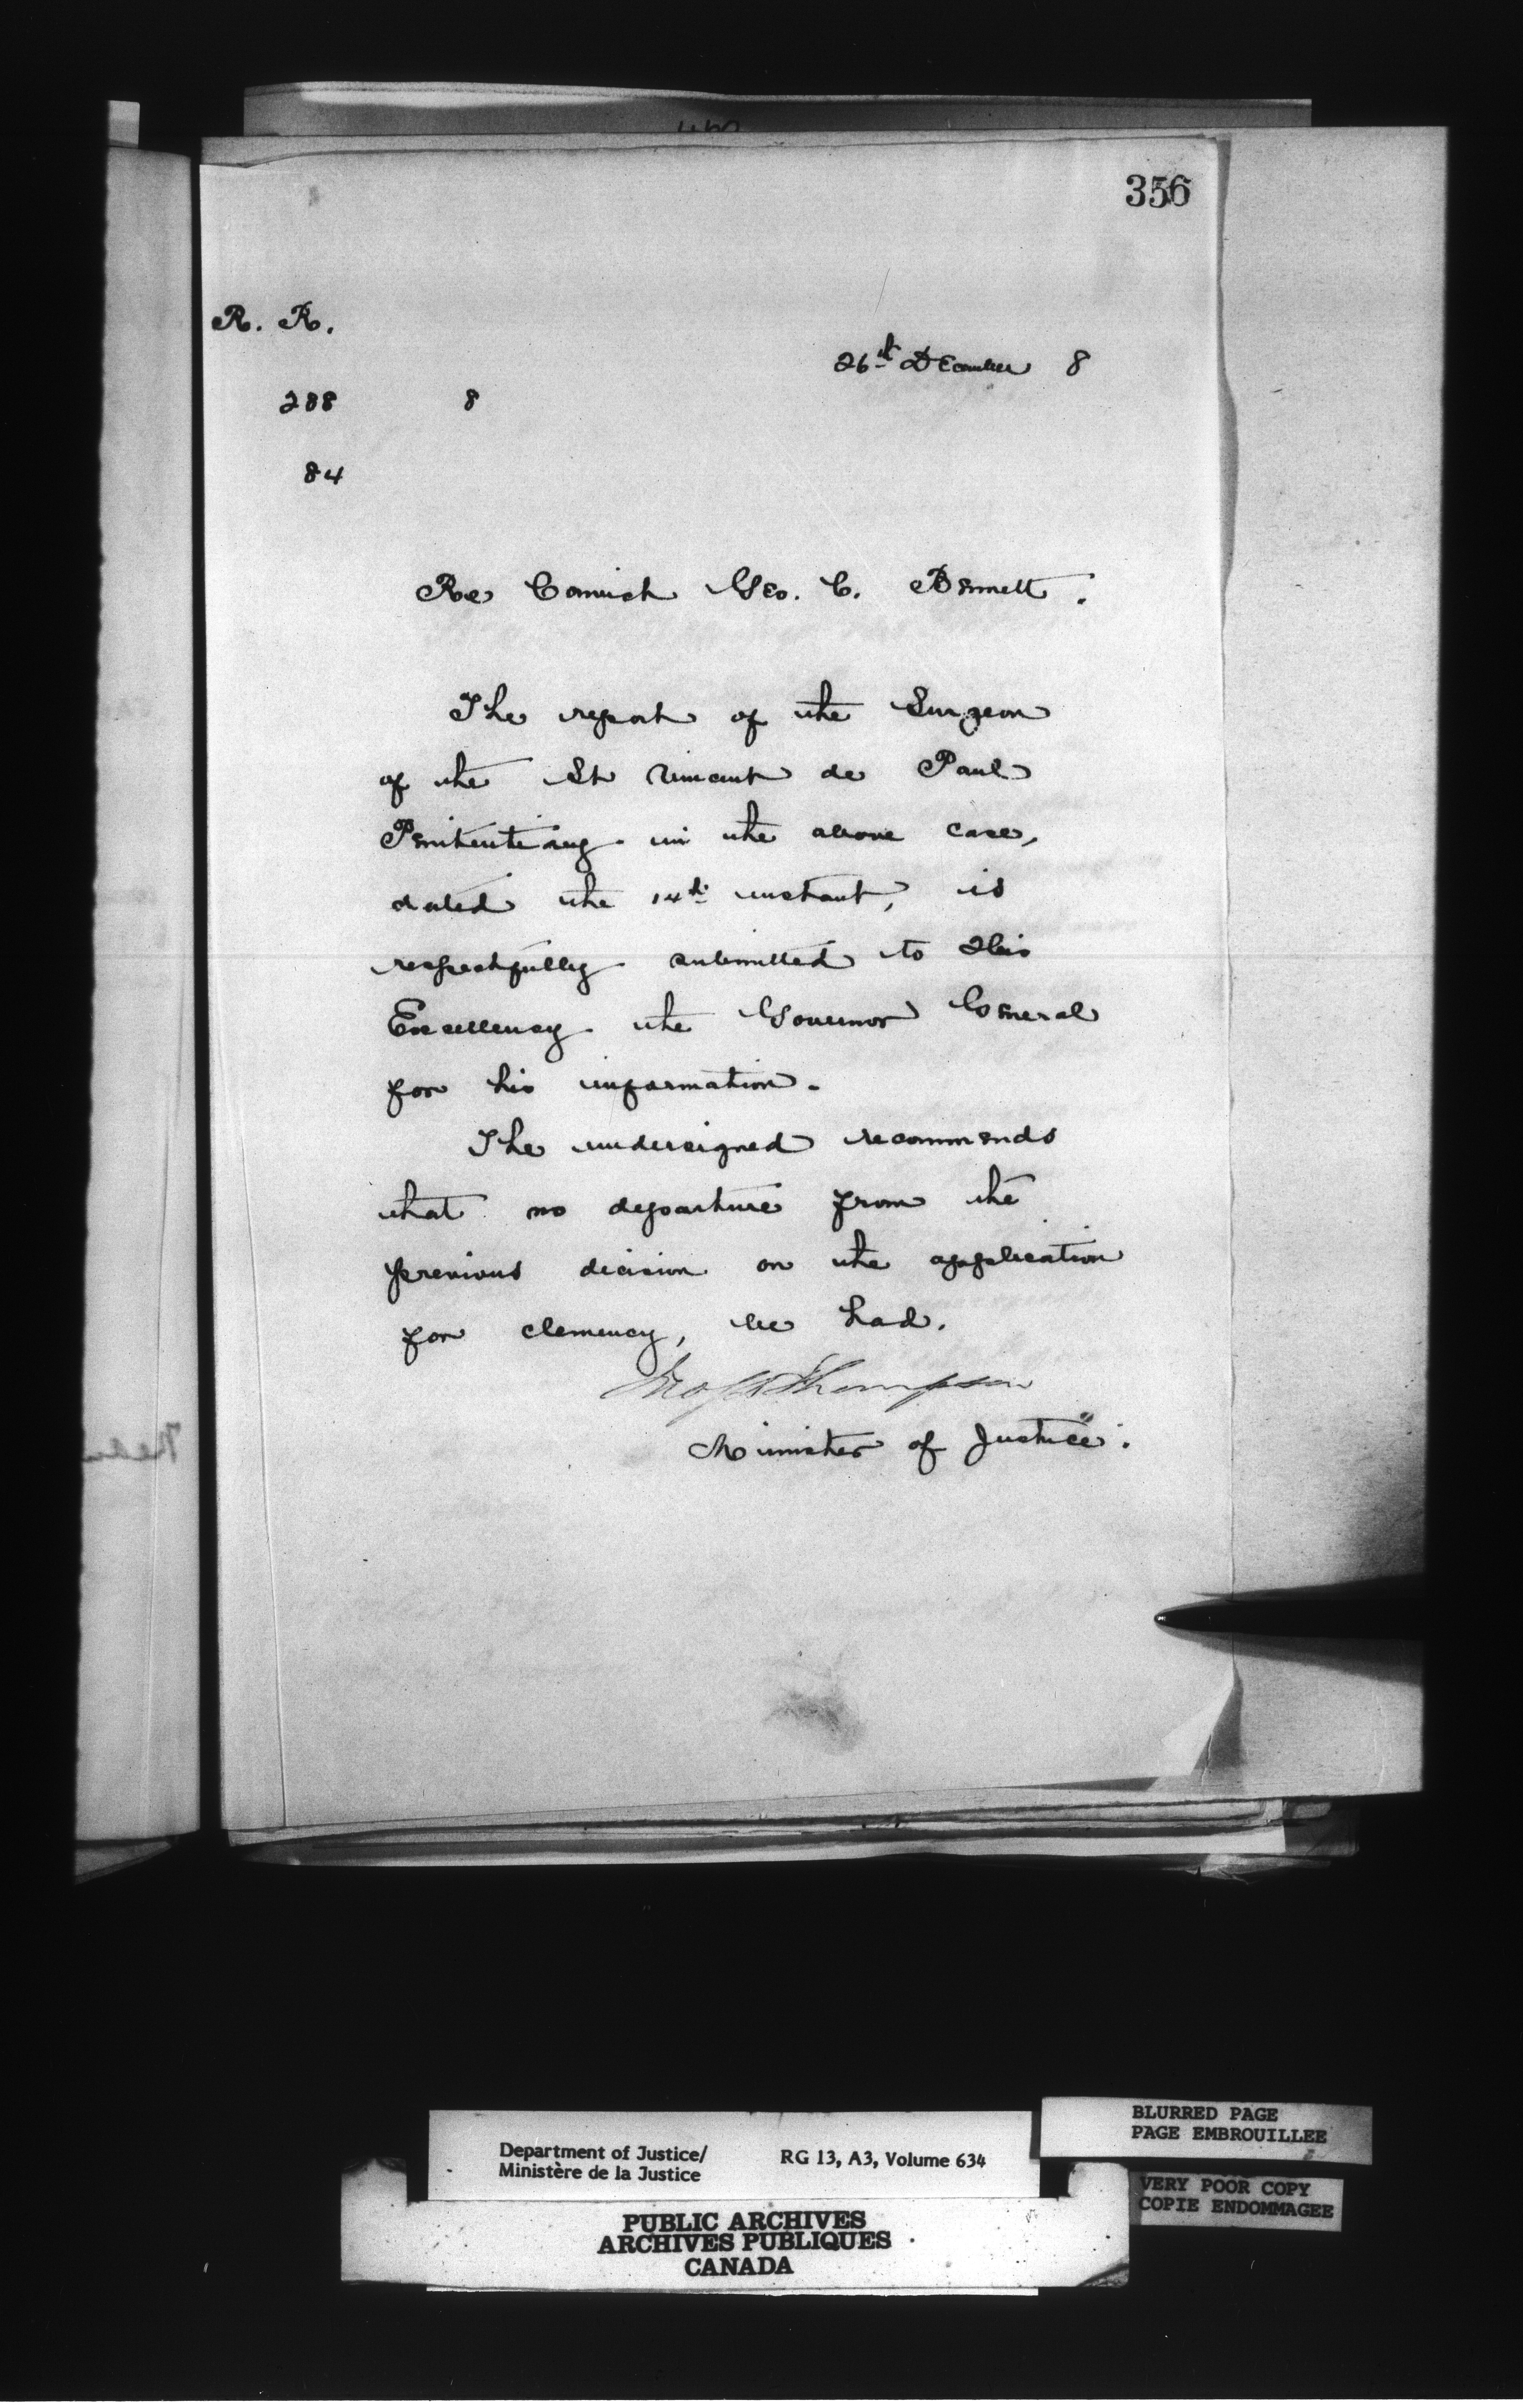 356
R. R.
26th December 8
288 8
84
Re Convict Geo. C. Bennett.
The report of the Surgeon
of the St Vincent de Paul
Penitentiary in the above case,
dated the 14th instant, is
respectfully submitted to His
Excellency the Governor General
for his information.
The undersigned recommends
that no departure from the
previous decision on the application
for clemency, be had.
Jno S D Thompson
Minister of Justice.
Department of Justice/
Ministère de la Justice
RG 13, A3, Volume 634
BLURRED PAGE
PAGE EMBROUILLEE
VERY POOR COPY
COPIE ENDOMMAGEE
PUBLIC ARCHIVES
ARCHIVES PUBLIQUES
CANADA